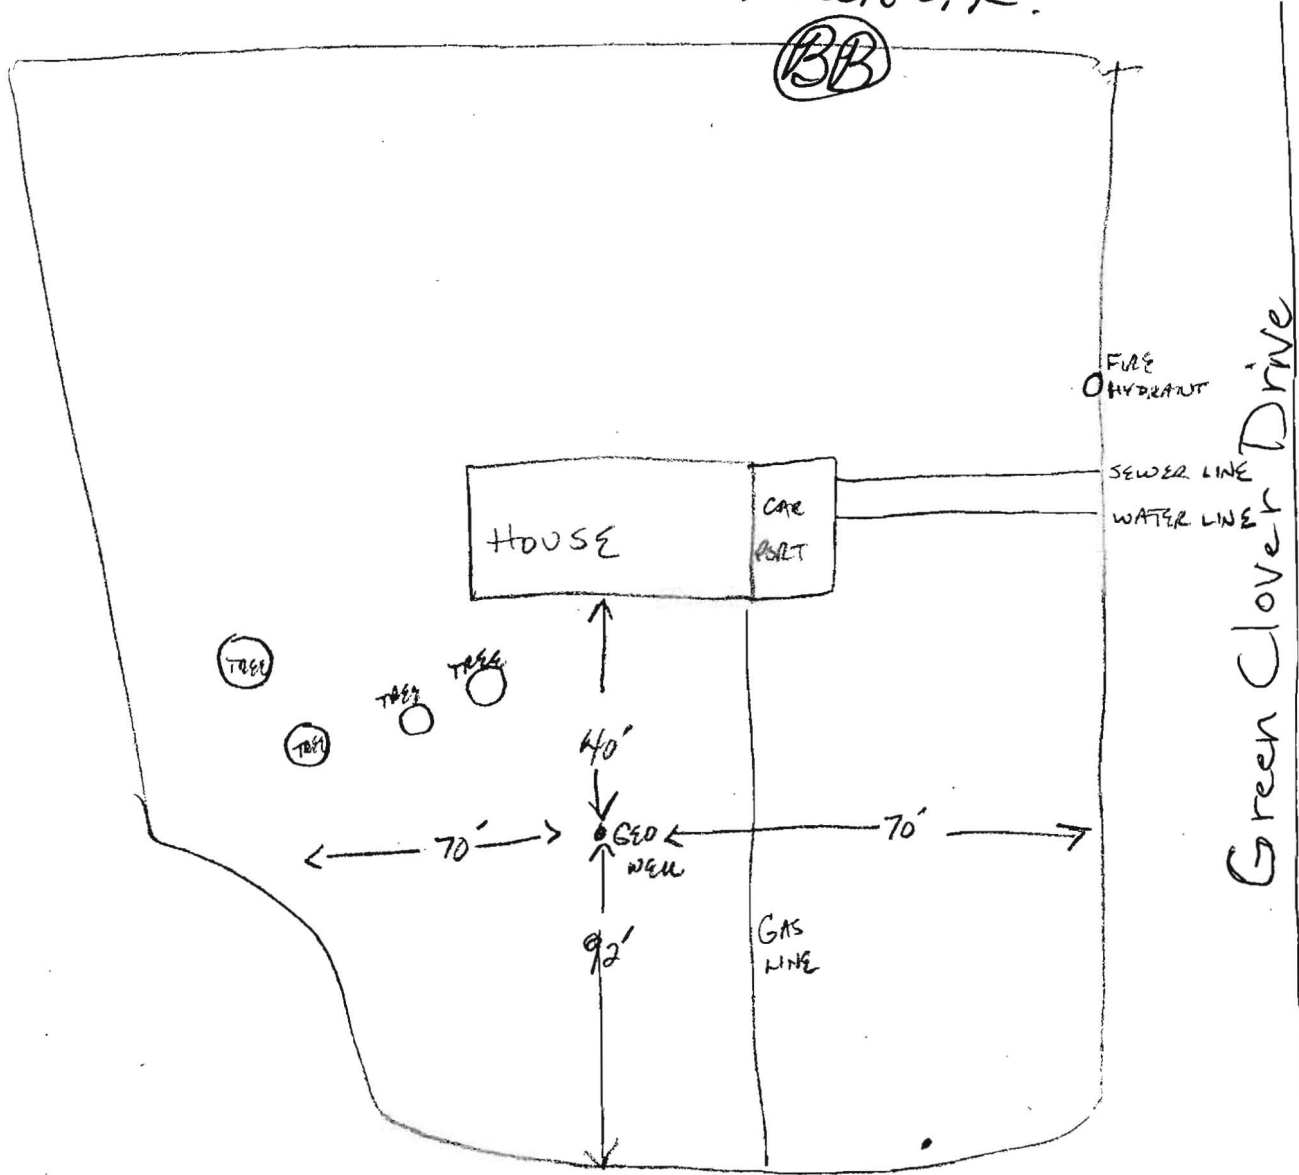 BB
FIRE
HYDRANT
SEWER LINE
WATER LINE
Green Clover Drive
CAR
PORT
HOUSE
TREE
TREE
TREE
TREE
40'
70'
GEO
WELL
70'
92'
GAS
LINE